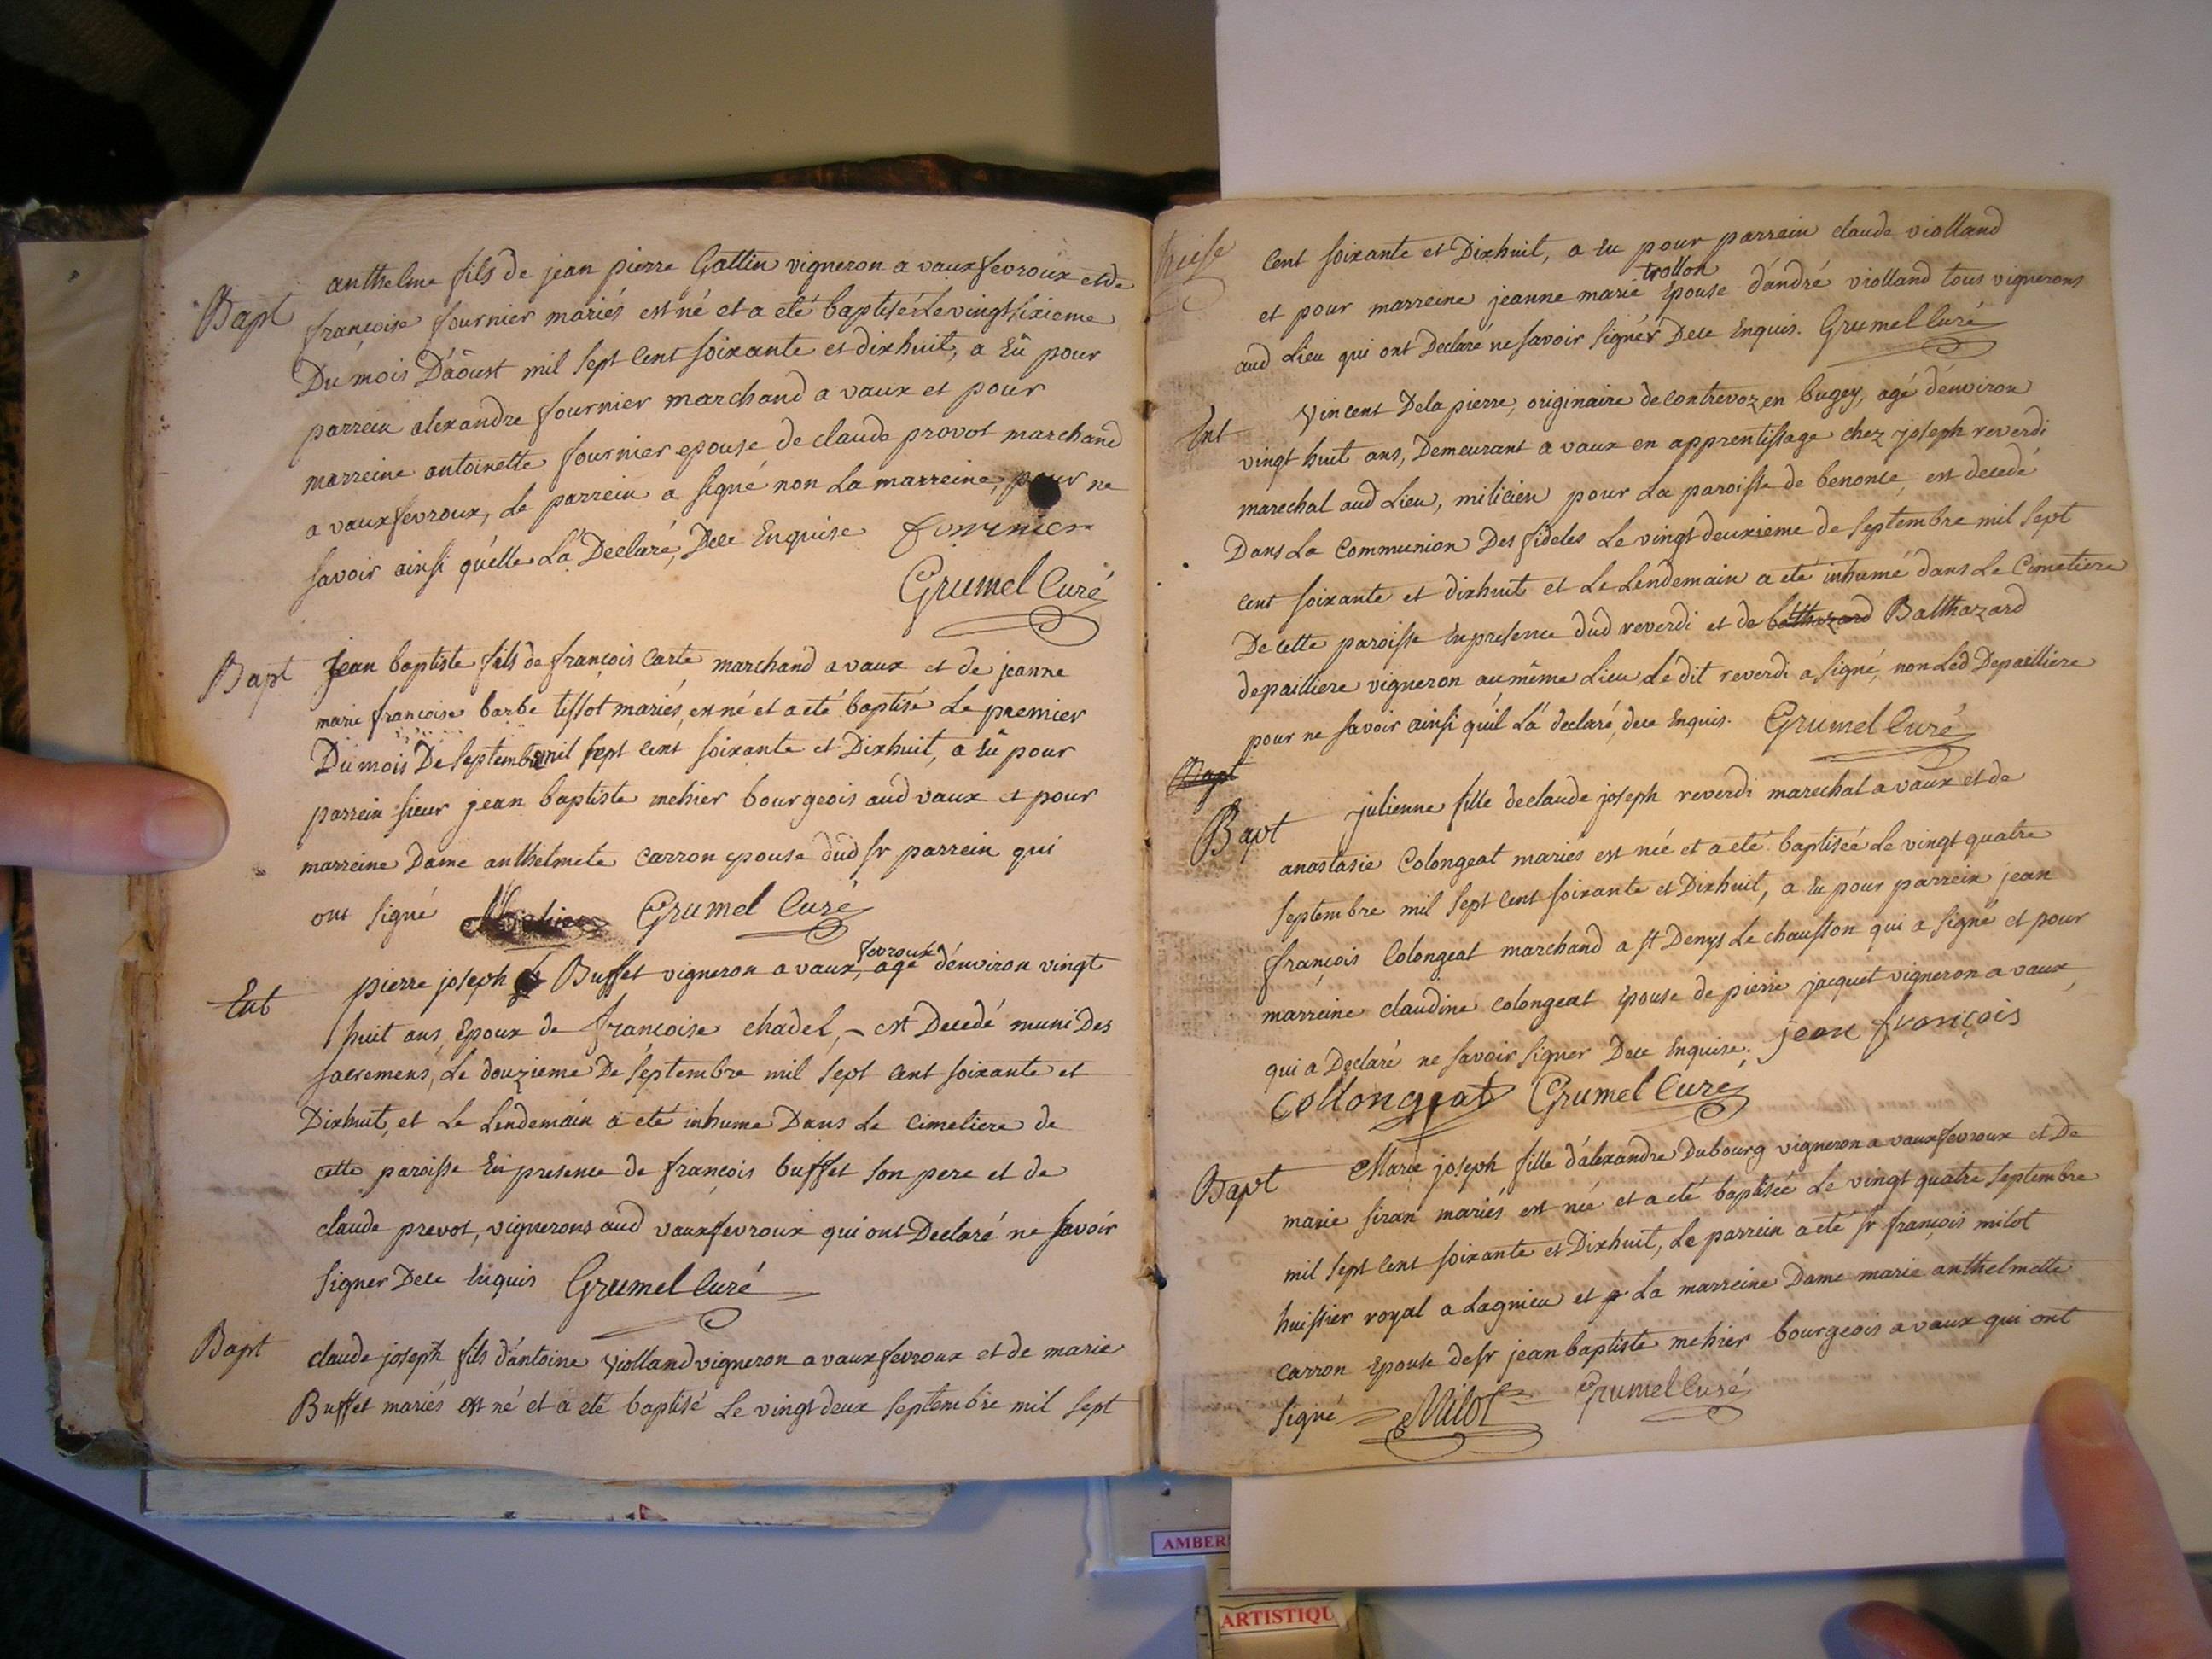 anthelme fils de jean pierre Gattin vigneron a vaux fevroux et de
Bapt françoise fournier mariés est né et a eté baptisé Le vingt sixieme
Du mois D'août mil sept cent soixante et dixhuit, a Eû pour
parrein alexandre fournier marchand a vaux et pour
marreine antoinette fournier epouse de claude provot marchand
a vaux fevroux, Le parrein a signé non La marreine, pour ne
savoir ainsi qu'elle L'a Declaré, Dece Enquise fournier
Grumel Curé
Bapt Jean baptiste fils de françois Carte marchand a vaux et de jeanne
marie françoise barbe tissot mariés, est né et a eté baptisé Le premier
Du mois De septembre mil sept cent soixante et Dixhuit, a Eû pour
parrein sieur jean baptiste mehier bourgeois aud vaux et pour
marreine Dame anthelmete Carron epouse dud sr parrein qui
ont signé Mehier Grumel Curé
fevroux
Ent pierre joseph Buffet vigneron a vaux, agé d'environ vingt
huit ans, Epoux de francoise chadel, est Decedé muni Des
sacremens, Le douzieme De septembre mil sept cent soixante et
Dixhuit, et Le Lendemain a eté inhume Dans Le Cimetiere de
cette paroisse En presence de françois buffet son pere et de
claude prevot, vignerons aud vaux fevroux qui ont Declaré ne savoir
signer Dece Enquis Grumel Curé
Bapt claude joseph fils d'antoine Violland vigneron a vaux fevroux et de marie
Buffet mariés est né et a eté baptisé Le vingt deux septembre mil sept
cent soixante et Dixhuit, a Eu pour parrein claude violland
trollon
et pour marreine jeanne marie Epouse d'andré violland tous vignerons
aud Lieu qui ont Declaré ne savoir signer Dece Enquis. Grumel Curé
Ent Vincent Dela pierre, originaire de Contrevoz en bugey, agé d'environ
vingt huit ans, Demeurant a vaux en apprentissage chez joseph reverdi
marechal aud Lieu, milicien pour La paroisse de benonce, est decedé
Dans La Communion Des fideles Le vingt deuxieme de septembre mil sept
cent soixante et dixhuit et Le Lendemain a eté inhumé dans Le Cimetiere
De cette paroisse En presence dud reverdi et de bathazard Balthazard
depailliere vigneron au même Lieu Le dit reverdi a signé, non Led Depailliere
pour ne savoir ainsi qu'il L'a declaré, dece Enquis. Grumel Curé
Bapt
julienne fille de claude joseph reverdi marechal a vaux et de
Bapt anastasie Colongeat mariés est née et a eté baptisée Le vingt quatre
septembre mil sept cent soixante et Dixhuit, a Eu pour parrein jean
françois Colongeat marchand a st Denys Le chausson qui a signé et pour
marreine claudine colongeat Epouse de pierre jacquet vigneron a vaux
qui a Declaré ne savoir signer Dece Enquise. jean françois
collongeat Grumel Curé
Bapt Marie joseph fille d'alexandre Dubourg vigneron a vaux fevroux et De
marie siran mariés, est née et a eté baptisée Le vingt quatre septembre
mil sept cent soixante et Dixhuit, Le parrein a eté sr françois milot
huissier royal a Lagnieu et La marreine Dame marie anthelmette
carron Epouse de sr jean baptiste mehier bourgeois a vaux qui ont
signé Milot Grumel Curé
AMBER
ARTISTIQU